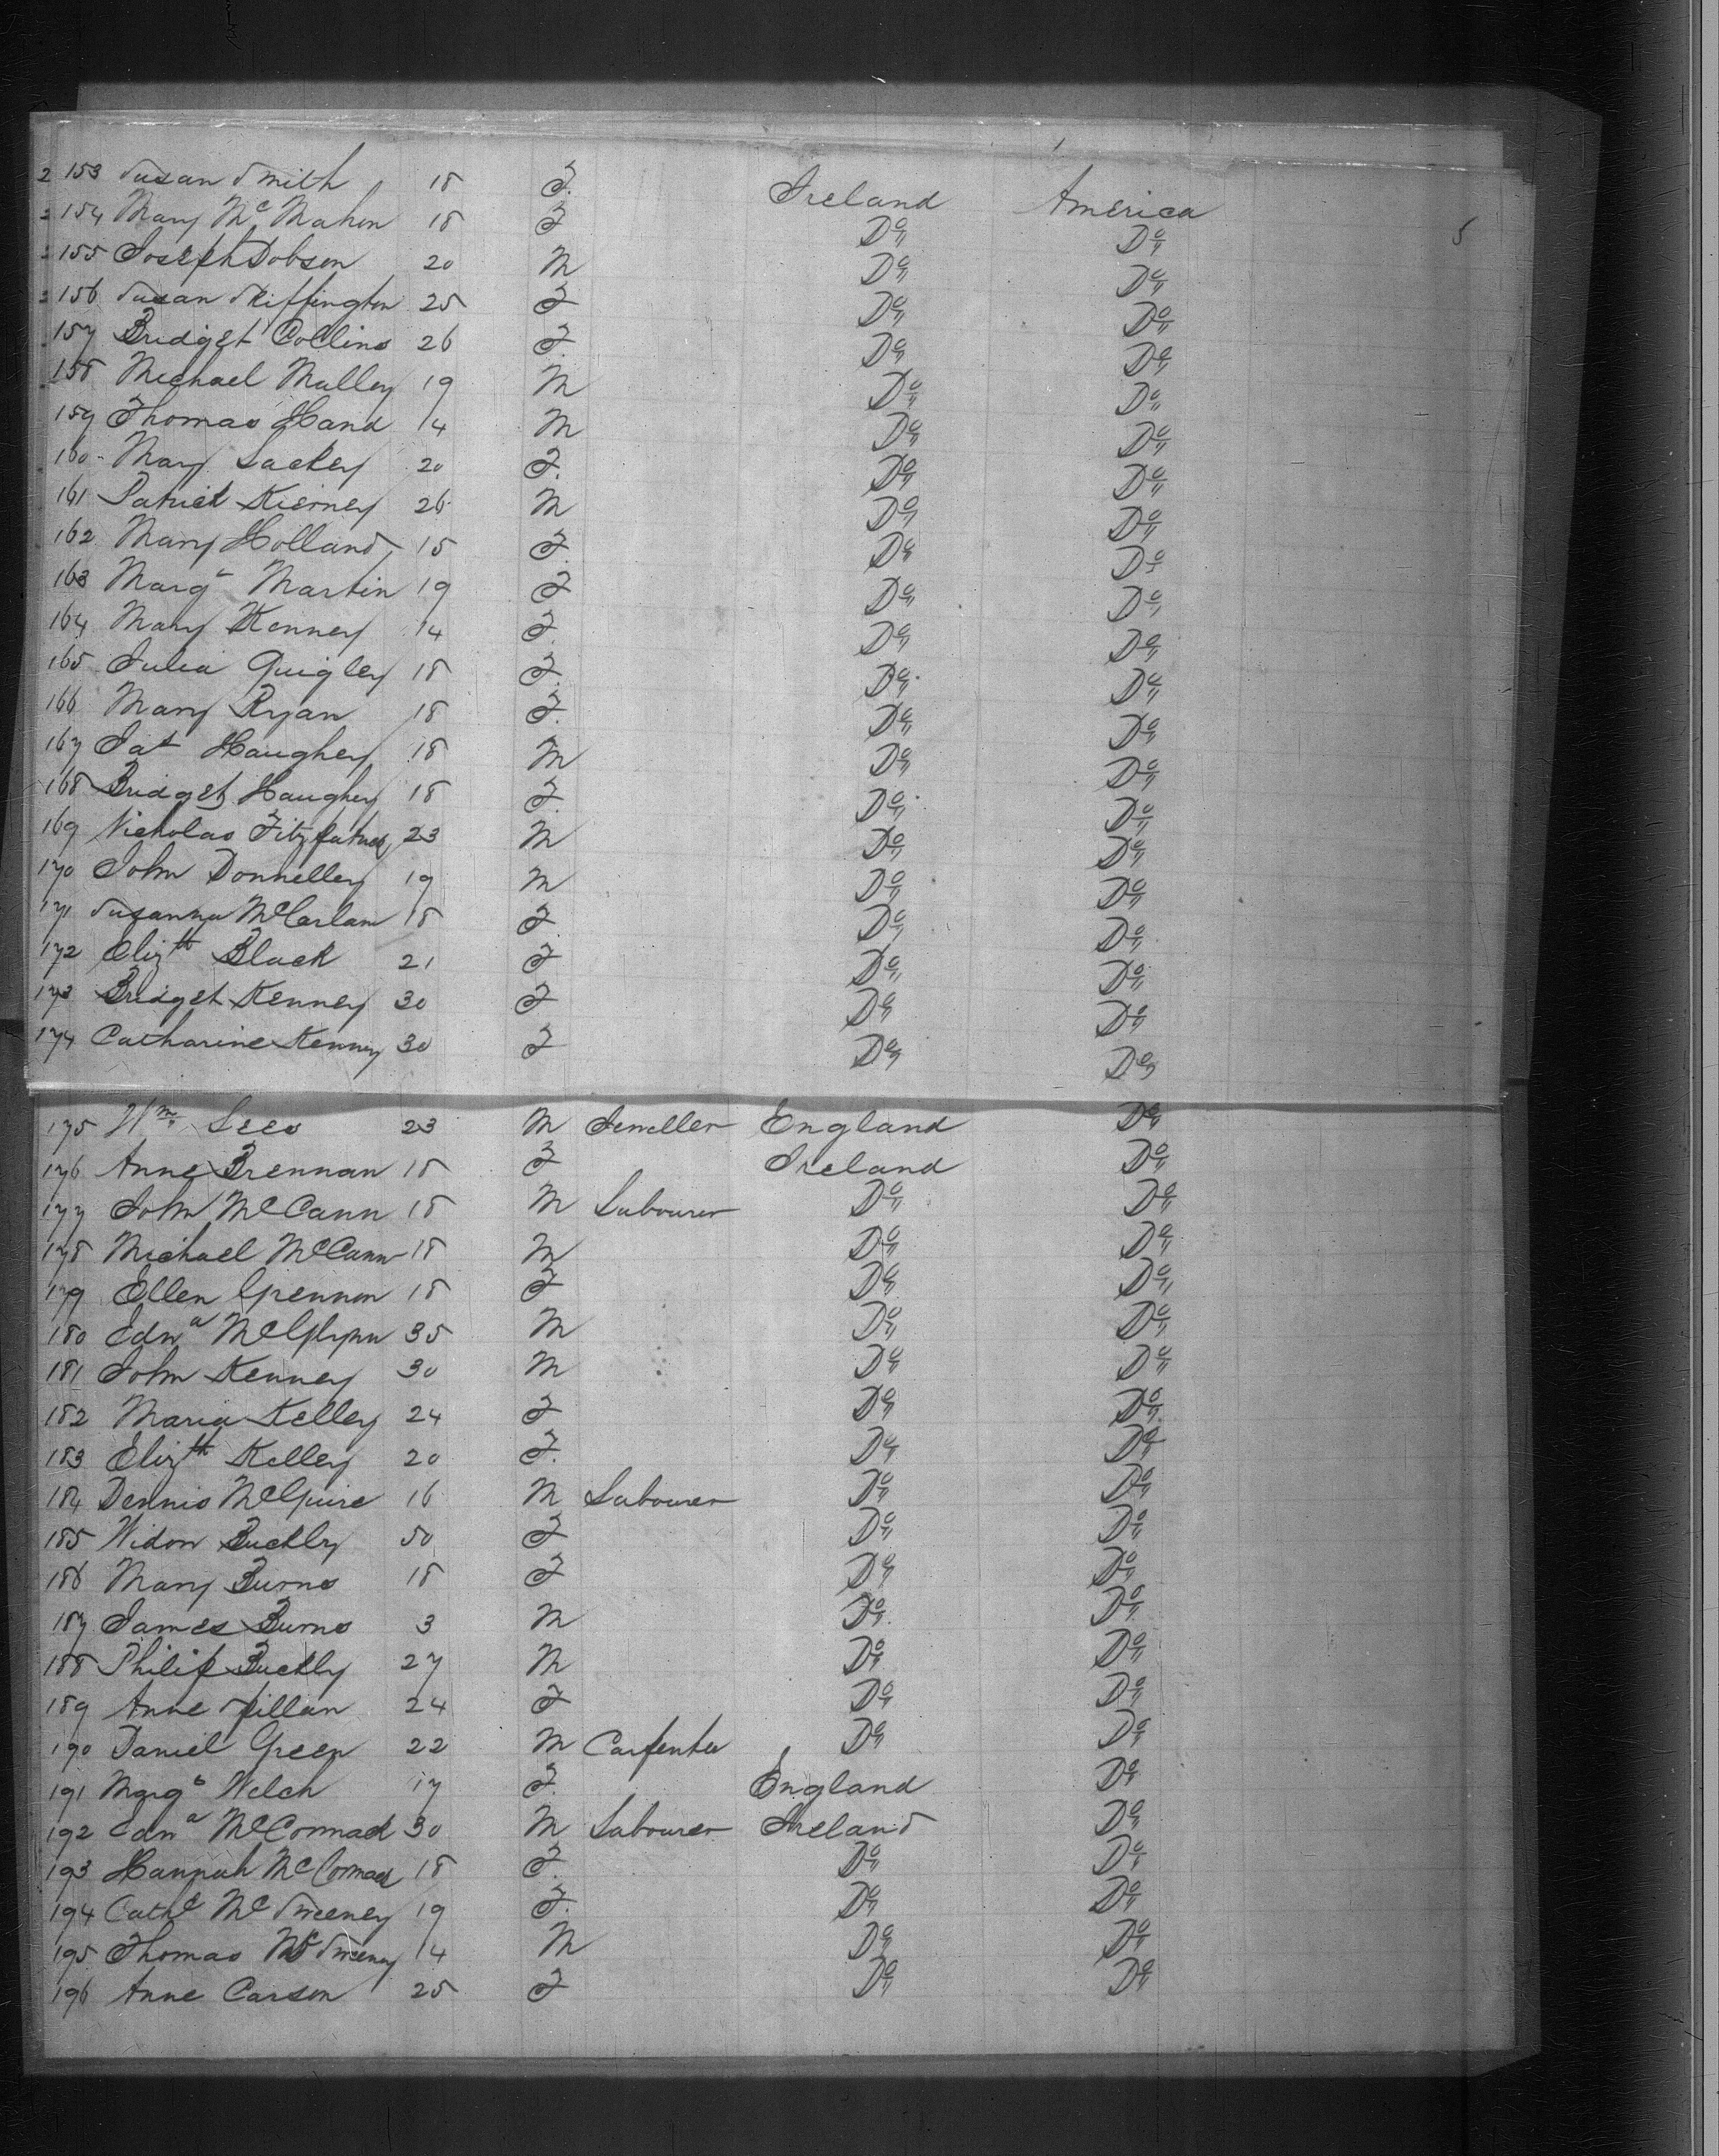 153 Susan Smith 18 F. Ireland America
154 Mary McMahon 18 F Do Do
5
155 Joseph Dobson 20 M Do Do
156 Susan Skiffington 25 F Do Do
157 Bridget Collins 26 F. Do Do
158 Michael Malley 19 M Do Do
159 Thomas Hand 14 M Do Do
160 Mary Lackey 20 F. Do Do
161 Patrick Kierney 26 M Do Do
162 Mary Holland 15 F. Do Do
163 Margt Martin 19 F Do Do
164 Mary Kenney 14 F. Do Do
165 Julia Quigley 18 F. Do Do
166 Mary Ryan 18 F. Do Do
167 Jas Haughey 18 M Do Do
168 Bridget Haughey 18 F. Do Do
169 Nicholas Fitzpatrick 23 M Do Do
170 John Donnelley 19 M Do Do
171 Susanna McCarlan 18 F. Do Do
172 Elizth Black 21 F Do Do
173 Bridget Kenney 30 F Do Do
174 Catharine Kenney 30 F Do Do
175 Wm. Lees 23 M Jeweller England Do
176 Anne Brennan 18 F Ireland Do
177 John McCann 18 M Labourer Do Do
178 Michael McCann 18 M Do Do
179 Ellen Grennon 18 F Do Do
180 Edwd McGlynn 35 M Do Do
181 John Kenney 30 M Do Do
182 Maria Kelley 24 F Do Do
183 Elizth Kelley 20 F. Do Do
184 Dennis McGuire 16 M Labourer Do Do
185 Widow Buckley 50 F Do Do
186 Mary Burns 18 F Do Do
187 James Burns 3 M Do Do
188 Philip Buckly 27 M Do Do
189 Anne Spillan 24 F Do Do
190 Daniel Green 22 M Carpenter Do Do
191 Margt Welch 17 F. England Do
192 Edwd McCormack 30 M Labourer Ireland Do
193 Hannah McCormack 18 F. Do Do
194 Cathe McSweeney 19 F. Do Do
195 Thomas McSweeney 14 M Do Do
196 Anne Carson 25 F Do Do